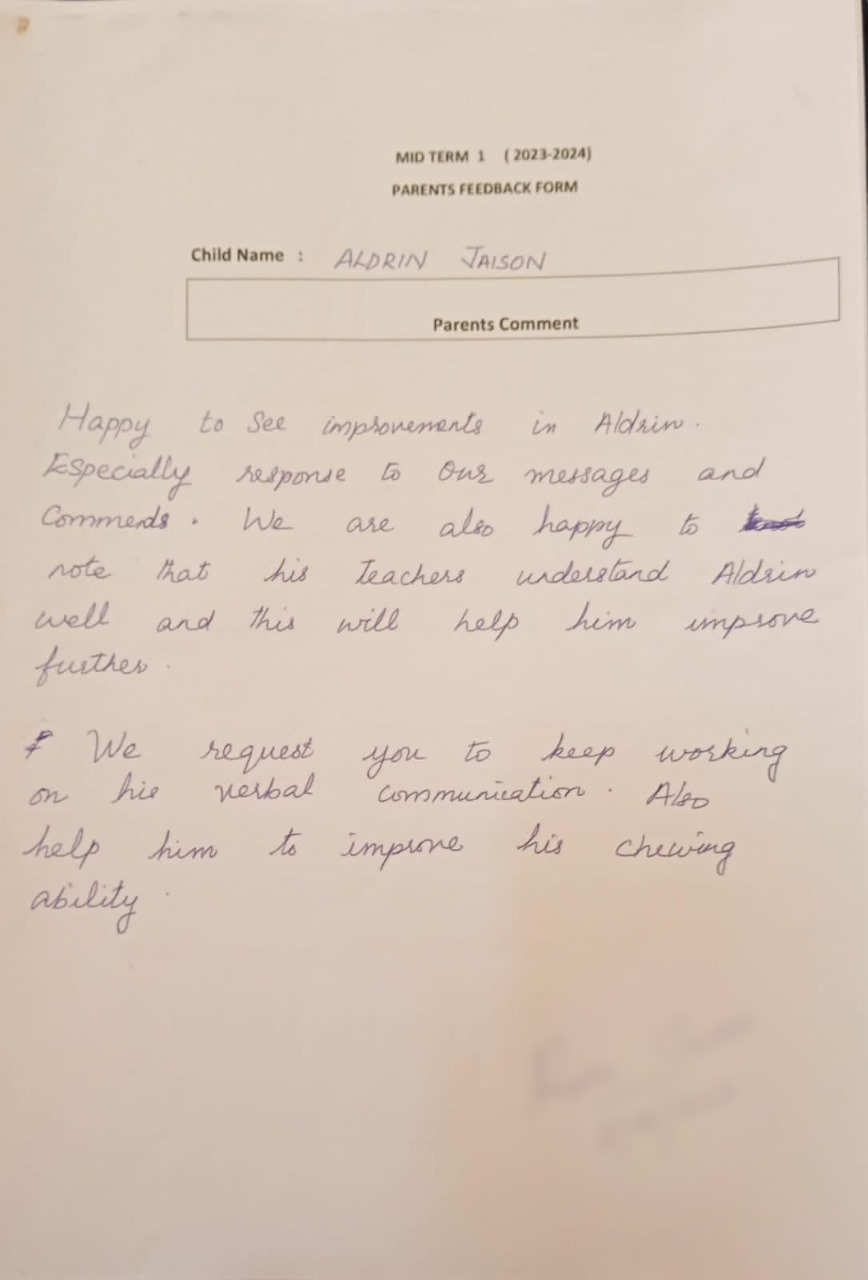 MID TERM 1 (2023-2024)
PARENTS FEEDBACK FORM
Child Name : ALDRIN JAISON
Parents Comment
Happy to see improvements in Aldrin.
Especially response to our messages and
Comments. We are also happy to
note that his Teachers understand Aldrin
well and this will help him improve
further.
We request you to keep working
on his verbal communication. Also
help him to improve his chewing
ability.